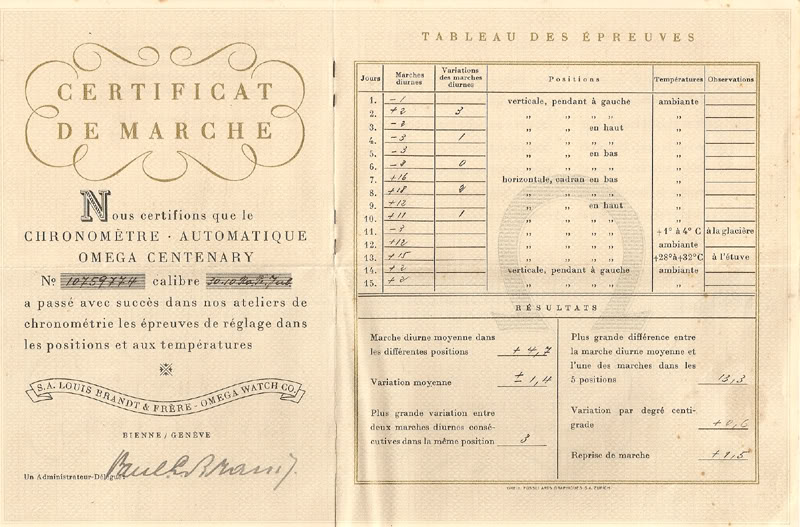 CERTIFICAT
DE MARCHE
Nous certifions que le
CHRONOMÈTRE · AUTOMATIQUE
OMEGA CENTENARY
No 10759774 calibre 30.10 Ra. P.
a passé avec succès dans nos ateliers de
chronométrie les épreuves de réglage dans
les positions et aux températures
S.A. LOUIS BRANDT & FRÈRE - OMEGA WATCH CO.
BIENNE / GENÈVE
Un Administrateur-Délégué:
TABLEAU DES ÉPREUVES
Jours Marches diurnes Variations des marches diurnes Positions Températures Observations
1. -1 verticale, pendant à gauche ambiante
2. +2 3 „ „ „ „ „
3. -2 „ „ en haut „
4. -3 1 „ „ „ „ „
5. -3 „ „ en bas „
6. -3 0 „ „ „ „ „
7. +16 horizontale, cadran en bas „
8. +18 2 „ „ „ „ „
9. +12 „ „ en haut „
10. +11 1 „ „ „ „ „
11. -3 „ „ „ „ +1° à 4° C à la glacière
12. +12 „ „ „ „ ambiante
13. +15 „ „ „ „ +28°à+32°C à l'étuve
14. +2 verticale, pendant à gauche ambiante
15. +2 „ „ „ „ „
RÉSULTATS
Marche diurne moyenne dans
les différentes positions + 4,7
Variation moyenne ± 1,4
Plus grande variation entre
deux marches diurnes consé-
cutives dans la même position 3
Plus grande différence entre
la marche diurne moyenne et
l'une des marches dans les
5 positions 13,3
Variation par degré centi-
grade +0,6
Reprise de marche +1,5